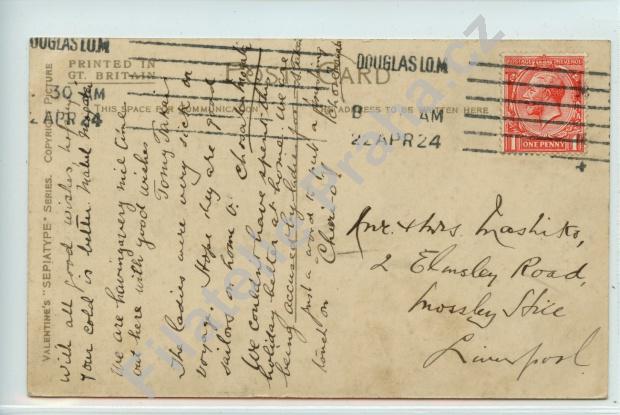 DOUGLAS I.O.M
PRINTED IN
GT. BRITAIN
POST CARD
THIS SPACE FOR COMMUNICATION
ADDRESS TO BE WRITTEN HERE
30 AM
22 APR 24
DOUGLAS I.O.M
8 AM
22 APR 24
POSTAGE REVENUE
1 1
ONE PENNY
VALENTINE'S "SEPIATYPE" SERIES. COPYRIGHT PICTURE
With all good wishes hoping
Your cold is better. Mabel
We are having a very nice time
out here with good wishes
The ladies were very sick on
voyage. Hope they are good
sailors on home v.
We couldn't have spent this
holiday better at home. We are
being accused by ladies
Just a word to put a
touch on Cheerio!
Mr. & Mrs. Mashiko,
2 Elmsley Road,
Mossley Hill
Liverpool.
Filatelie-Praha.cz